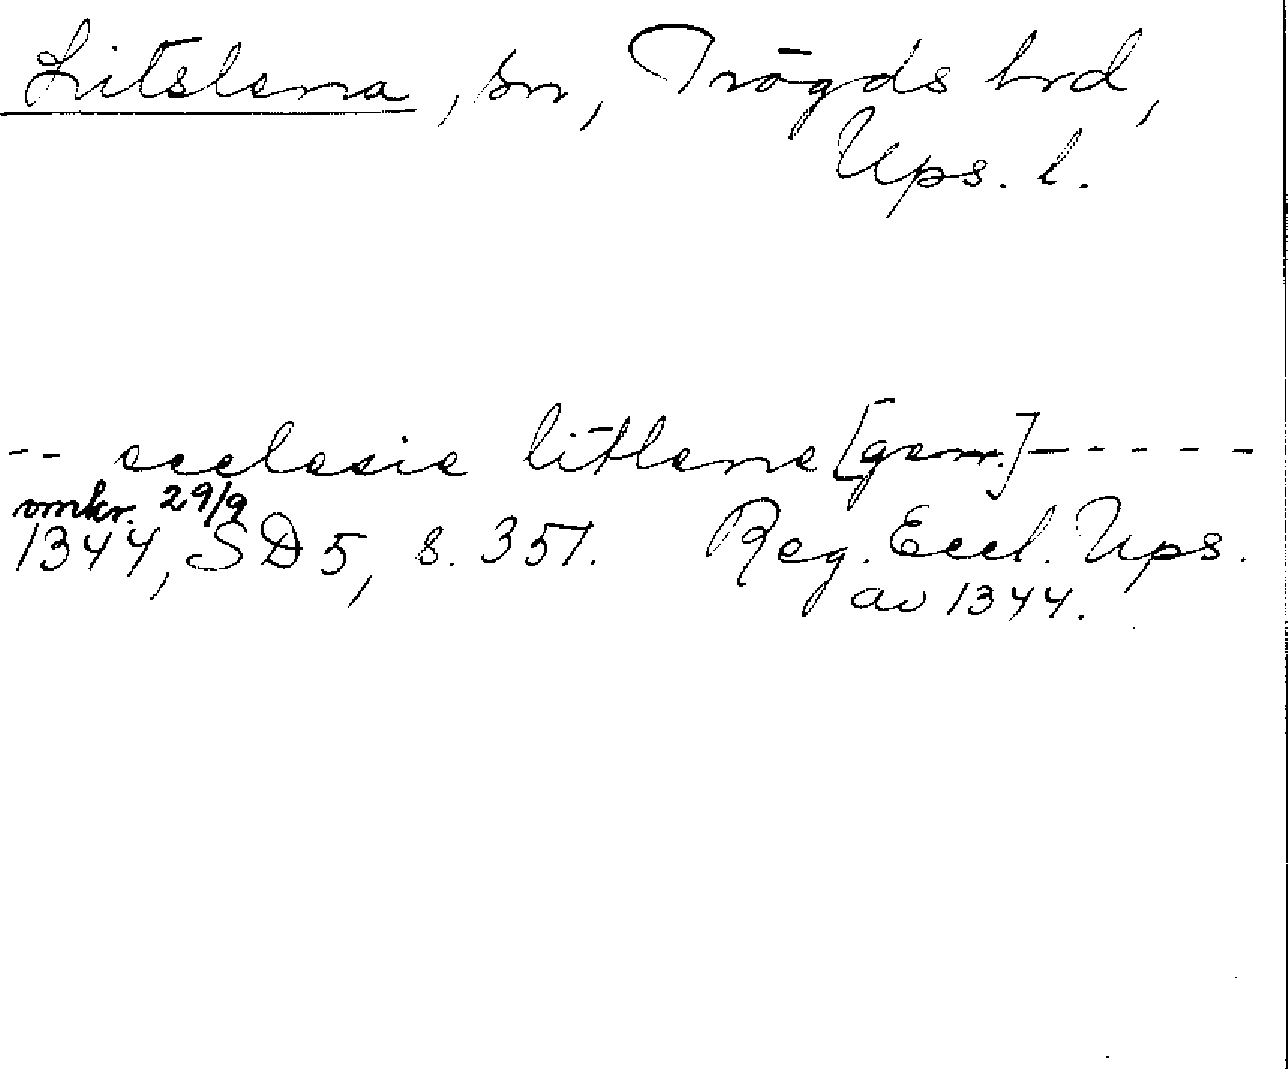 Litslena, sn, Trögds hrd,
Ups. l.
-- ecclesie litlene [gen.] -----
omkr. 29/9
1344, SD 5, s. 351. Reg. Eccl. Ups.
av 1344.